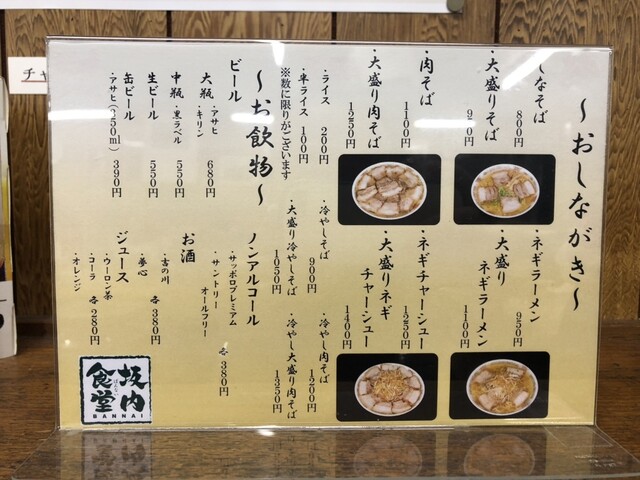 ～おしながき～
しなそば 800円
・大盛りそば
・肉そば 1100円
・大盛り肉そば 1250円
・ネギラーメン 950円
・大盛り ネギラーメン 1100円
・ネギチャーシュー 1250円
・大盛りネギ チャーシュー 1400円
・ライス 200円
・半ライス 100円
※数に限りがございます
・冷やしそば 900円
・大盛り冷やしそば 1050円
・冷やし肉そば 1200円
・冷やし大盛り肉そば 1350円
～お飲物～
ビール
大瓶 ・アサヒ ・キリン 680円
中瓶 ・黒ラベル 550円
生ビール 550円
缶ビール ・アサヒ(350ml) 390円
ノンアルコール
・サッポロプレミアム
・サントリー オールフリー
各380円
お酒
・吉の川
・夢心
各380円
ジュース
・ウーロン茶
・コーラ
・オレンジ
各280円
坂内食堂
ばんない
BANNAI
チャ